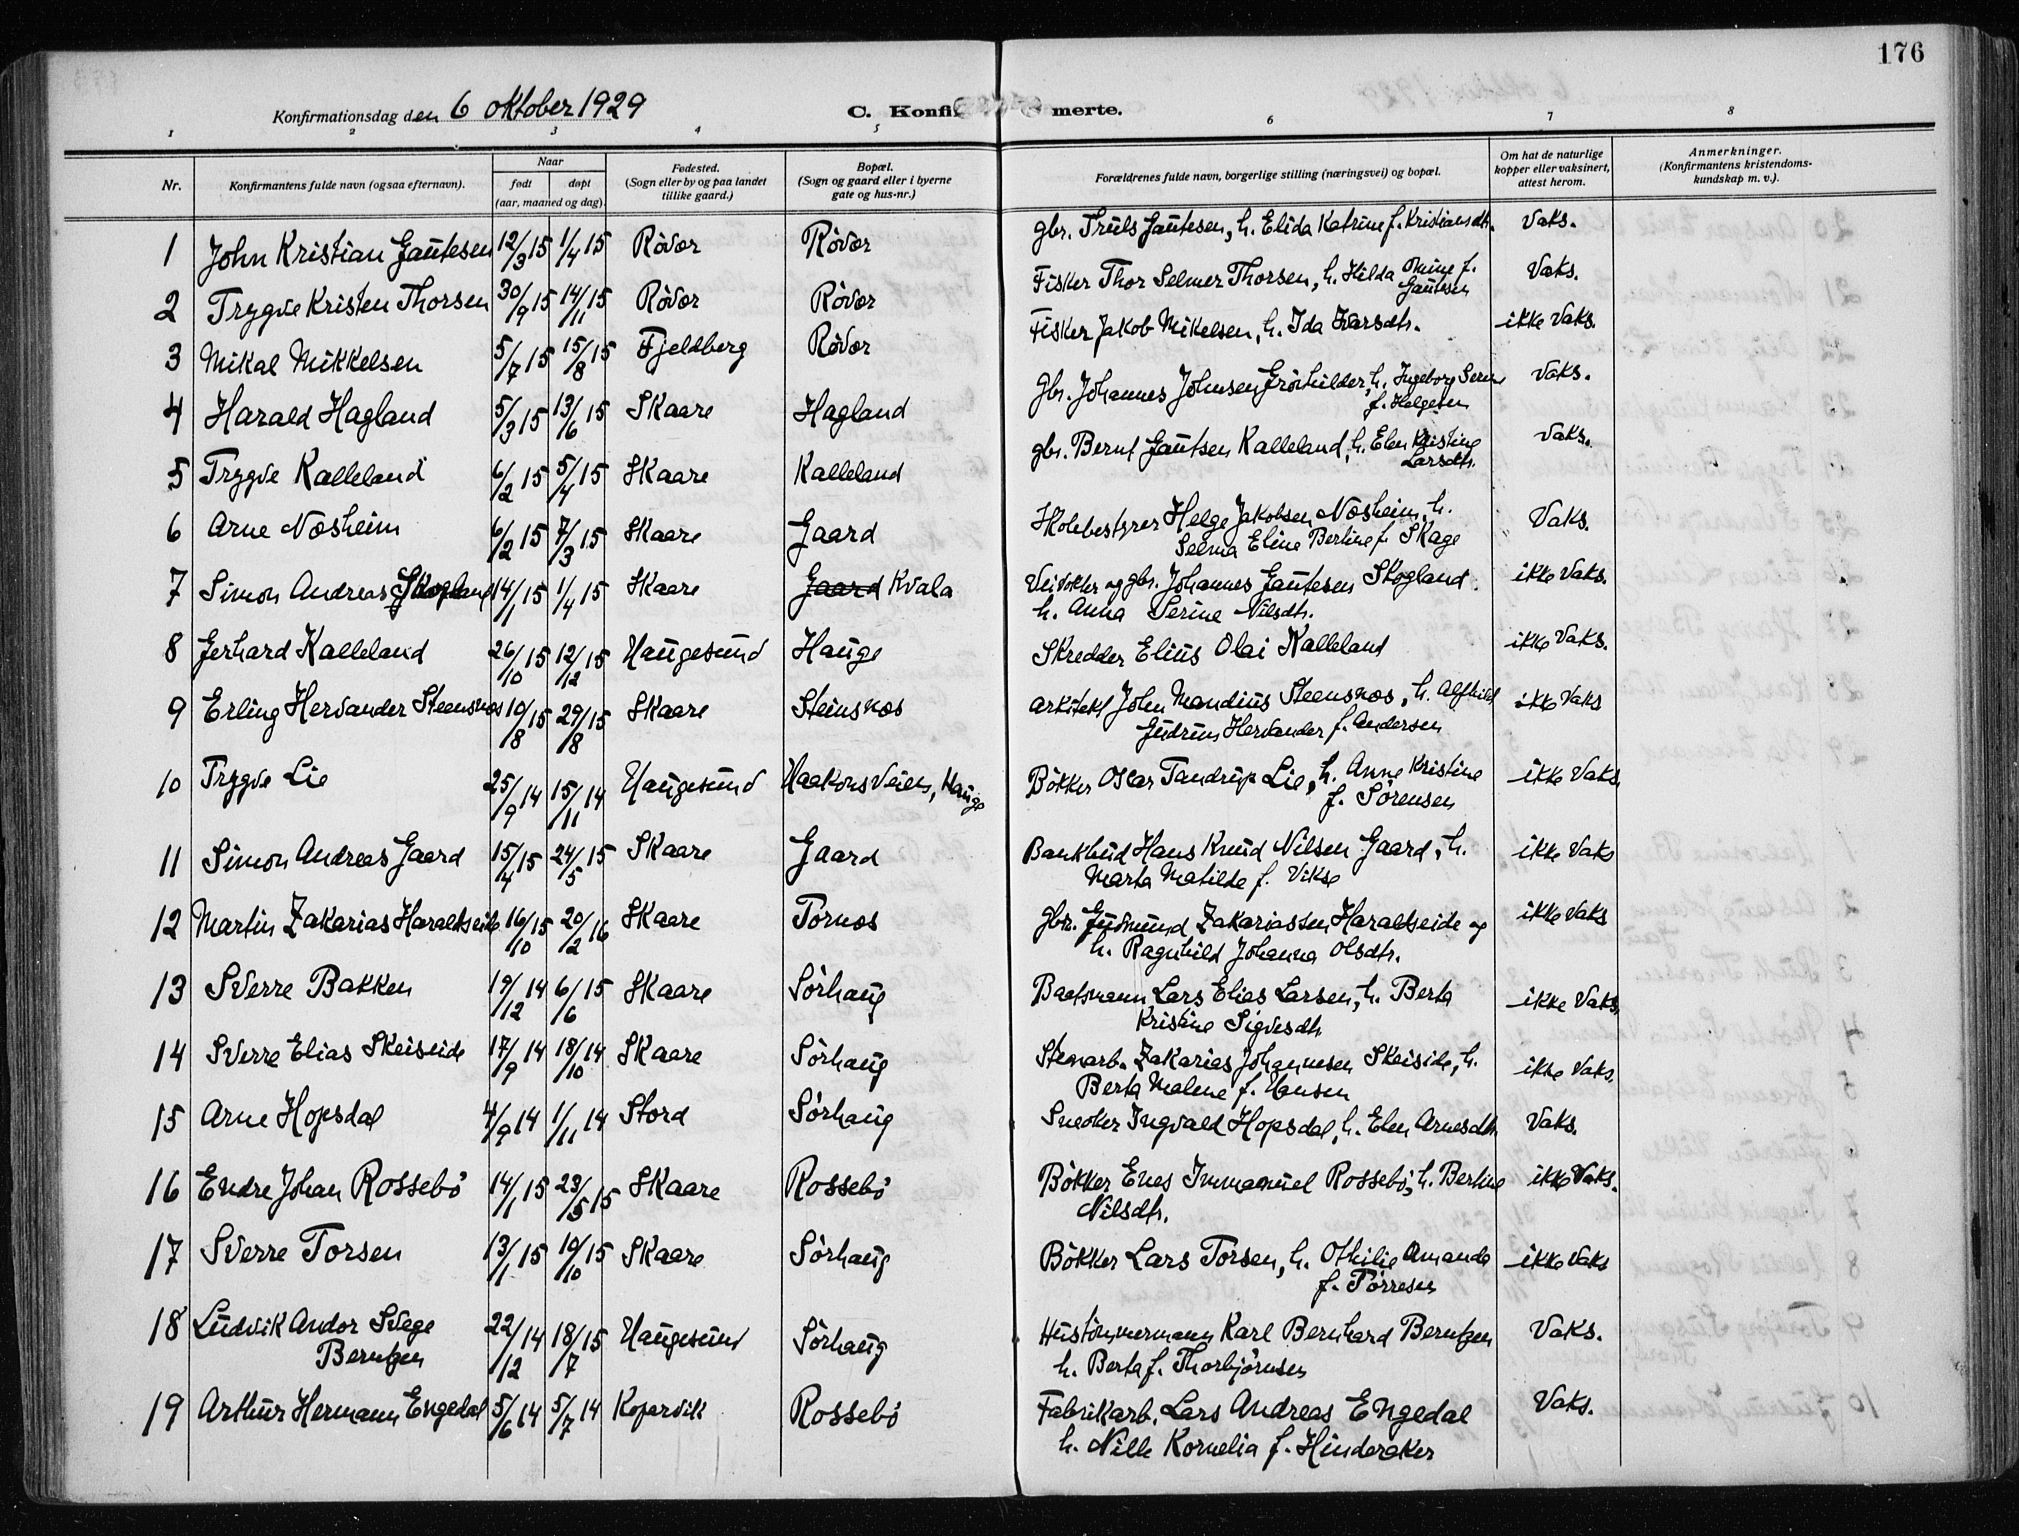 176
Konfirmationsdag den 6 oktober 1929
C. Konfi merte.
1 2 3 4 5 6 7 8
Nr. Konfirmantens fulde navn (ogsaa efternavn). Naar født døpt (aar, maaned og dag). Fødested. (Sogn eller by og paa landet tillike gaard.) Bopæl. (Sogn og gaard eller i byerne gate og hus-nr.) Forældrenes fulde navn, borgerlige stilling (næringsvei) og bopæl. Om hat de naturlige kopper eller vaksinert, attest herom. Anmerkninger. (Konfirmantens kristendoms-kundskap m. v.).
1 John Kristian Gautesen 12/3 15 1/4 15 Røvær Røvær gbr. Truls Gautesen, h. Elida Katrine f. Kristiansdtr. Vaks.
2 Trygve Kristen Thorsen 30/9 15 14/11 15 Røvær Røvær Fisker Thor Selmer Thorsen, h. Hilda Omine f. Gautesen Vaks.
3 Mikal Mikkelsen 5/7 15 15/8 15 Fjeldberg Røvær Fisker Jakob Mikelsen, h. Ida Ivarsdtr. ikke Vaks.
4 Harald Hagland 5/3 15 13/6 15 Skaare Hagland gbr. Johannes Johnsen Grønhilder, h. Ingeborg Serine f. Helgesen Vaks.
5 Trygve Kalleland 6/2 15 5/4 15 Skaare Kalleland gbr. Bernt Gautsen Kalleland, h. Elen Kristine Larsdtr. Vaks.
6 Arne Næsheim 6/2 15 7/3 15 Skaare Gaard Skolebestyrer Helge Jakobsen Næsheim, h.
Selma Eline Bertine f. Skage Vaks.
7 Simon Andreas Skogland 14/1 15 1/4 15 Skaare Gaard Kvala Veivokter og gbr. Johannes Gautesen Skogland.
h. Anna Serine Nilsdtr. ikke Vaks.
8 Gerhard Kalleland 26/10 15 12/12 15 Haugesund Hauge Skredder Elius Olai Kalleland ikke Vaks.
9 Erling Hervander Steensnæs 10/8 15 29/8 15 Skaare Steinsnæs Arkitekt John Mandius Steensnæs, h. Alfhild
Gudrun Hervander f. Andersen ikke Vaks
10 Trygve Lie 25/9 14 15/11 14 Haugesund Haakons Veien, Hauge Bøkker Oscar Tandrup Lie, h. Anne Kristine
f. Sørensen ikke Vaks.
11 Simon Andreas Gaard 15/4 15 24/5 15 Skaare Gaard Bankbud Hans Knud Nilsen Gaard, h.
Marta Matilde f. Vikse ikke Vaks
12 Martin Zakarias Haraltseide 16/10 15 20/2 16 Skaare Tornæs gbr. Gudmund Zakariassen Haraltseide og
h. Ragnhild Johanna Olsdtr. ikke Vaks
13 Sverre Bakken 19/12 14 6/6 15 Skaare Sørhaug Baatsmann Lars Elias Larsen, h. Berta
Kristine Sigvesdtr ikke Vaks.
14 Sverre Elias Skeiseide 17/9 14 18/10 14 Skaare Sørhaug Stenarb. Zakarias Johannesen Skeiside, h.
Berta Malene f. Hansen ikke Vaks.
15 Arne Hopsdal 4/9 14 1/11 14 Stord Sørhaug Snedker Ingvald Hopsdal, h. Elen Arnesdtr. Vaks.
16 Endre Johan Rossebø 14/1 15 23/5 15 Skaare Rossebø Bøkker Enes Immanuel Rossebø, h. Bertine
Nilsdtr. ikke Vaks.
17 Sverre Torsen 13/1 15 10/10 15 Skaare Sørhaug Bøkker Lars Torsen, h. Othilie Amanda
f. Tørresen ikke Vaks
18 Ludvik Andor Svege
Berntzen 22/12 14 18/7 15 Haugesund Sørhaug Hustømmermann Karl Bernhard Berntzen
h. Berta f. Thorbjørnsen Vaks.
19 Arthur Hermann Engedal 5/6 14 5/7 14 Kopervik Rossebø Fabrikarb. Lars Andreas Engedal
h. Nille Kornelia f. Hinderaker Vaks.